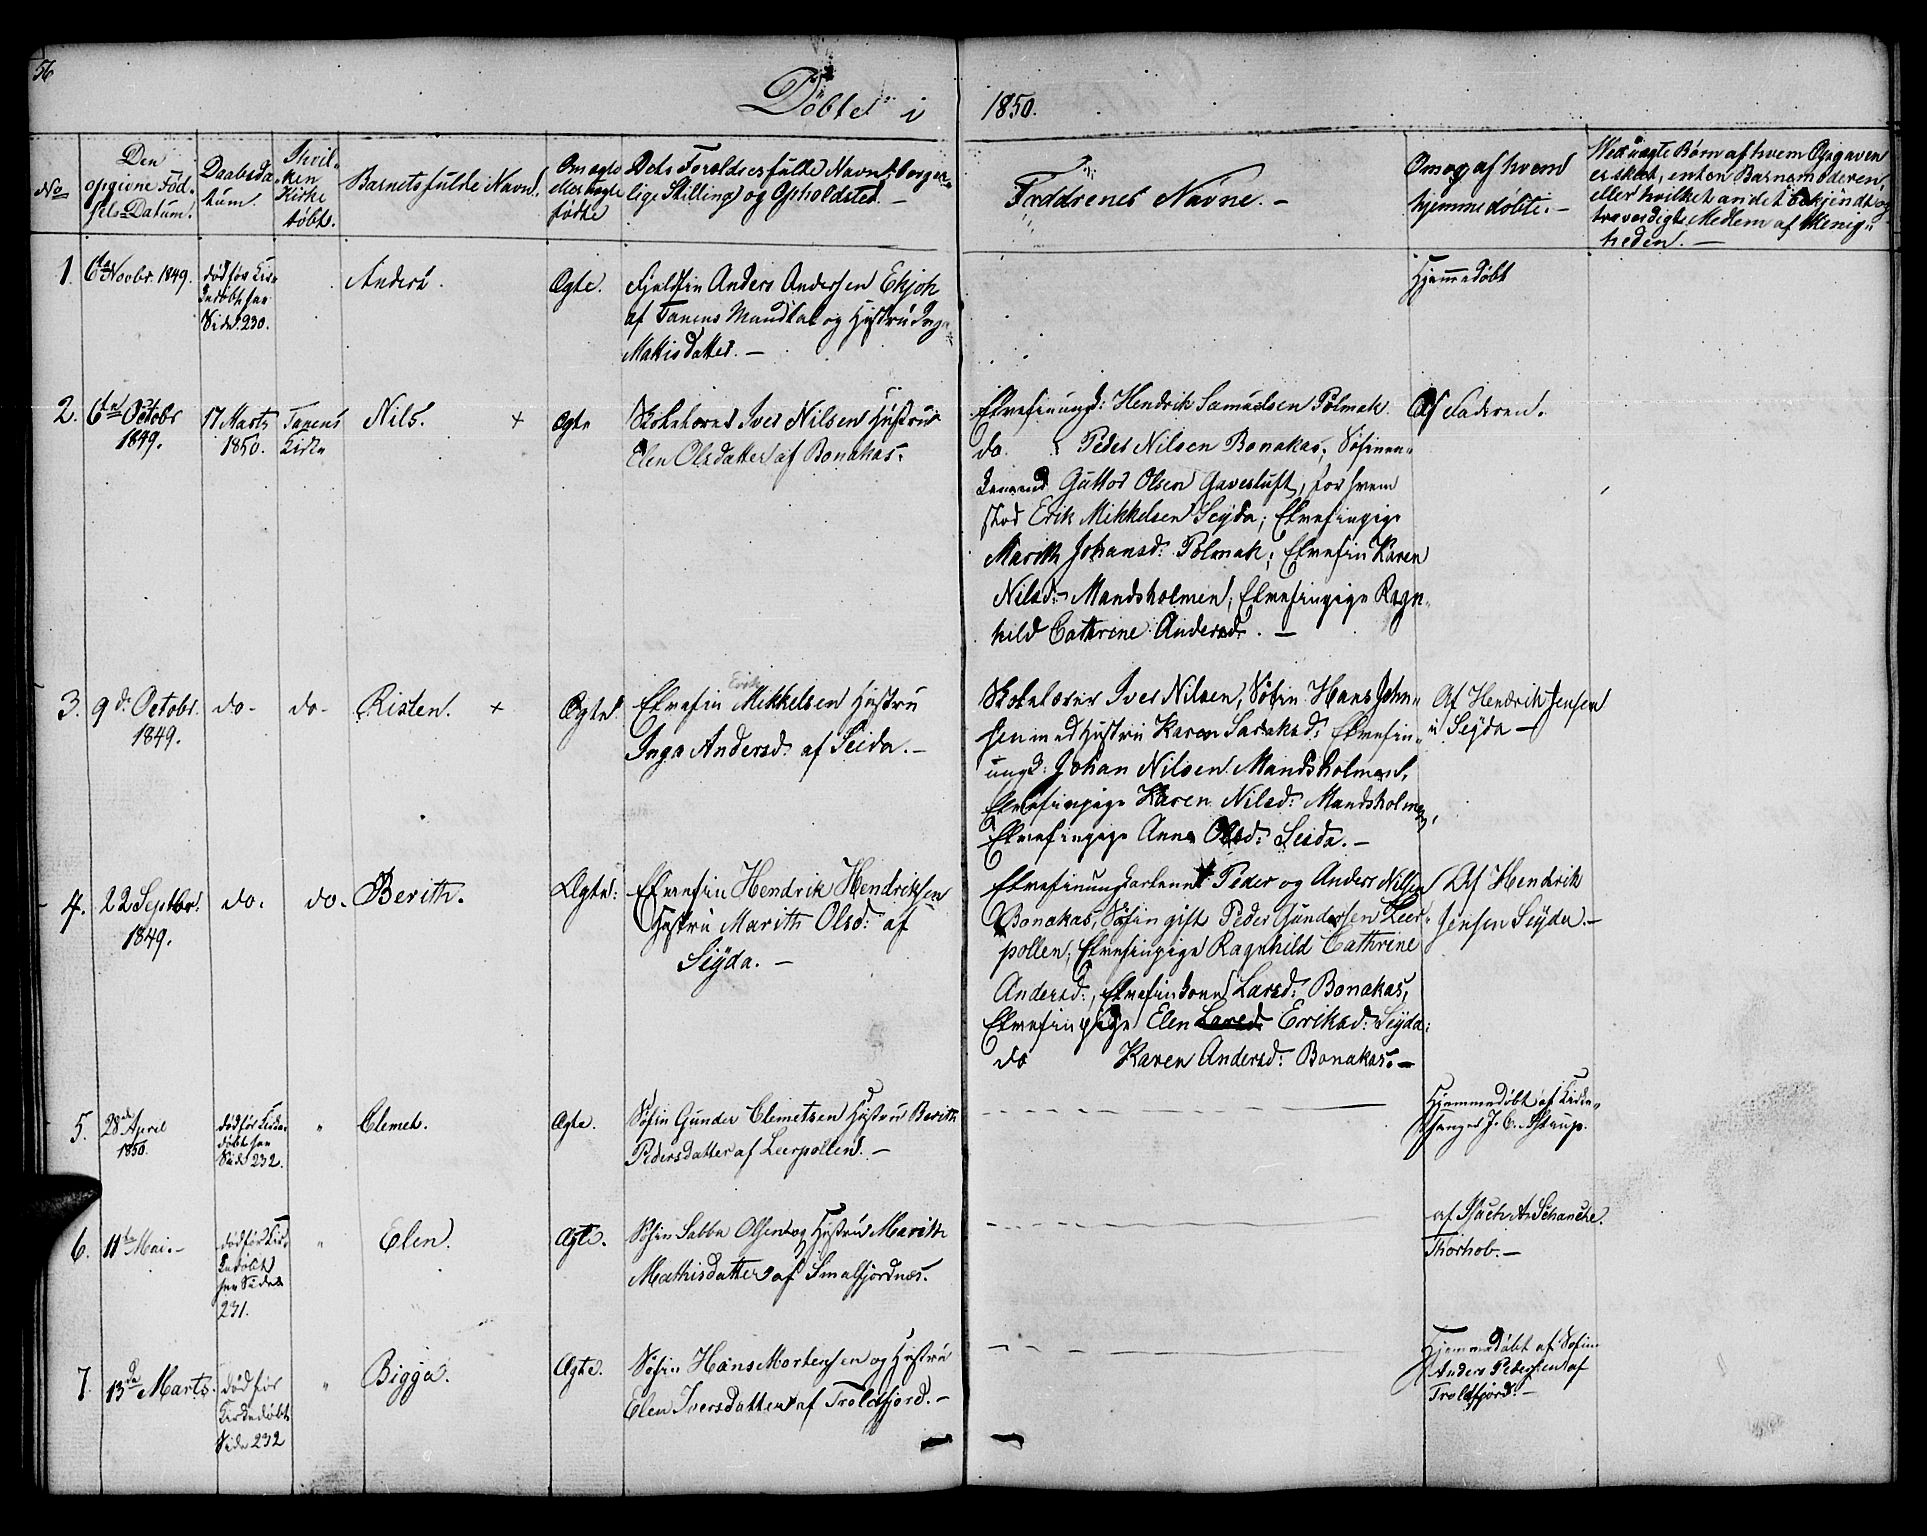 56
Döbte i 1850.
No
Den opgivne Födsels Datum.
Daabsdatum.
I hvilken Kirke döbt.
Barnets fulde Navn.
Om ægte eller uægte födte
Dets Forældres fulde Navn, borgerlige Stilling og Opholdsted. –
Faddrenes Navne. –
Om og af hvem hjemmedöbte. –
Ved uægte Börn af hvem Opgaven er skeet, enten Barnemoderen, eller hvilket andet bekjendt og troværdigt Medlem af Menigheden. –
1. 6te Novbr. 1849.
död för Kirkedöbt see Side 230.
Anders.
Ægte.
Fjeldfin Anders Andersen
af Tanens Mandtal og Hustru Inga
Mattisdatter. –
Hjemmedöbt
2. 6te Octobr 1849.
17 Marts 1850.
Tanens Kirke
Nils. +
Ægte
Skolelærer Iver Nilsen Hustru
Elen Olsdatter af Bonakas.
Elvefinungk: Hendrik Samuelsen Polmak.
do Peder Nilsen Bonakas, Söfinen
Guttor Olsen Gavesluft, for hvem
stod Erik Mikkelsen Seyda; Elvefinpige
Marith Johansd: Polmak; Elvefin Karen
Nilsd: Mandsholmen; Elvefinpige Ragn-
hild Cathrine Andersd. –
Af Faderen.
3. 9de Octobr. 1849.
do- do-
Risten. +
Ægte.
Erik
Elvefin Mikkelsen Hustru
Inga Andersd: af Seida. –
Skolelærer Iver Nilsen, Söfin Hans John-
sen med Hustru Karen Sarakad: Elvefin-
ungk: Johan Nilsen Mandsholmen,
Elvefinpige Karen Nilsd: Mandsholmen,
Elvefinpige Anne Olsd: Seida. –
Af Hendrik Jensen
i Seyda –
4. 22 Septbr. 1849.
do. do.
Berith.
Ægte:
Elvefin Hendrik Hendriksen
Hustru Marith Olsd: af
Seyda. –
Elvefinungkarlene Peder og Anders Nilsen
Bonakas, Söfin gift Peder Gundersen Leer-
pollen, Elvefinpige Ragnhild Cathrine
Andersd:, Elvefinkone Larsd: Bonakas,
Elvefinpige Elen Larsd Eriksd: Seyda:
do Karen Andersd: Bonakas. –
Af Hendrik
Jensen Seyda. –
5. 28de April 1850.
död för Kirkedöbt see Side 232.
"
Clemet.
Ægte.
Söfin Gunder Clemetsen Hustru Berith
Pedersdatter af Leerpollen. –
Hjemmedöbt af Kirke-
sanger J. C. Astrup.
6. 11te Mai. –
död för Kirkedöbt see Side 231.
"
Elen.
Ægte.
Söfin Sabba Olsen og Hustru Marith
Mathisdatter af Smalfjordnæs.
af Isach A. Schanche.
Thorhob. –
7. 13de Marts.
död för Kirkedöbt Side 232
"
Bigga.
Ægte.
Söfin Hans Mortensen og Hustru
Elen Iversdatter af Troldfjord. –
Hjemmedöbt af Söfin
Anders Pedersen af
Troldfjord. –